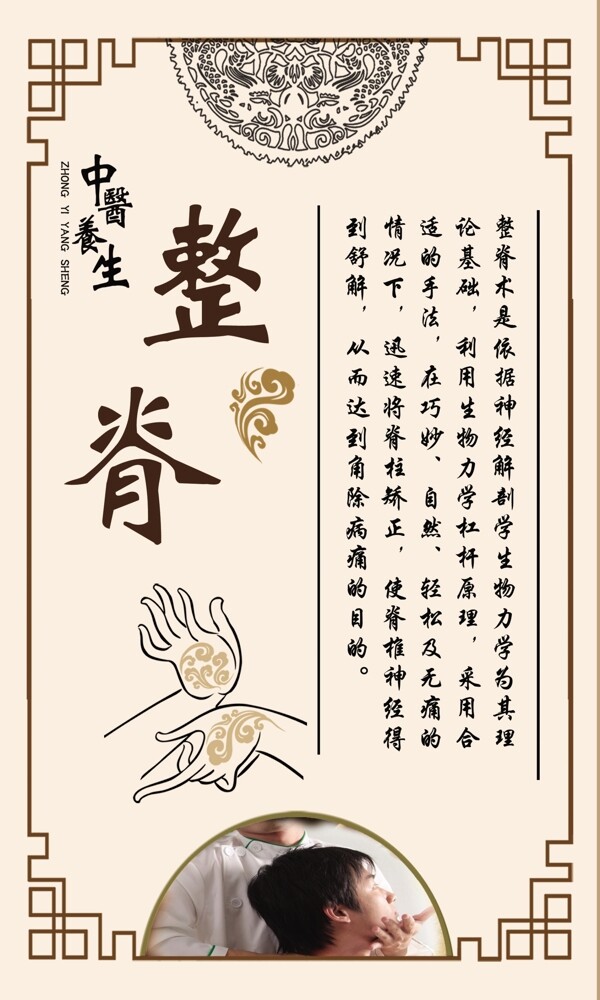 中醫養生
ZHONG YI YANG SHENG
整脊
整脊术是依据神经解剖学生物力学为其理
论基础，利用生物力学杠杆原理，采用合
适的手法，在巧妙、自然、轻松及无痛的
情况下，迅速将脊柱矫正，使脊椎神经得
到舒解，从而达到角除病痛的目的。